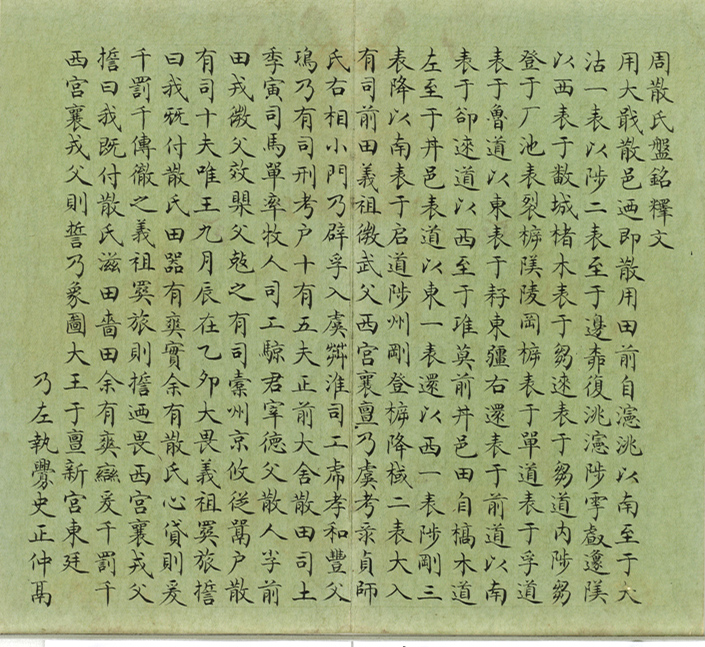 周散氏盤銘釋文
用大戢散邑迺即散用田前自瀗洮以南至于大
沽一表以陟二表至于邊柰復洮瀗陟雩𠭯邍𨻰
以西表于敽城楮木表于芻逨表于芻道内陟芻
登于厂池表裂㭪𨻰陵岡㭪表于單道表于孚道
表于魯道以東表于耔東疆右還表于前道以南
表于卻逨道以西至于堆莫前丼邑田自槁木道
左至于丼邑表道以東一表還以西一表陟剛三
表降以南表于启道陟州剛登㭪降棫二表大入
有司前田義祖微武父西宮襄亶乃虞考彔貞師
氏右相小門乃辟孚入虞艿淮司工虒孝和豐父
鳿乃有司刑考户十有五夫正前大舍散田司土
季寅司馬單率牧人司工駉君宰德父散人芈前
田戎微父效㮚父𠭥之有司橐州京攸從鬲户散
有司十夫唯王九月辰在乙卯大畏義祖䍧旅𢶡
曰我旣付散氏田器有爽實余有散氏心貸則爰
千罰千傳徹之義祖䍧旅則𢶡迺畏西宮襄戎父
𢶡曰我既付散氏滋田嗇田余有爽䜌爰千罰千
西宮襄戎父則誓乃象圖大王于亶新宮東廷
乃左執𦅫史正仲鬲